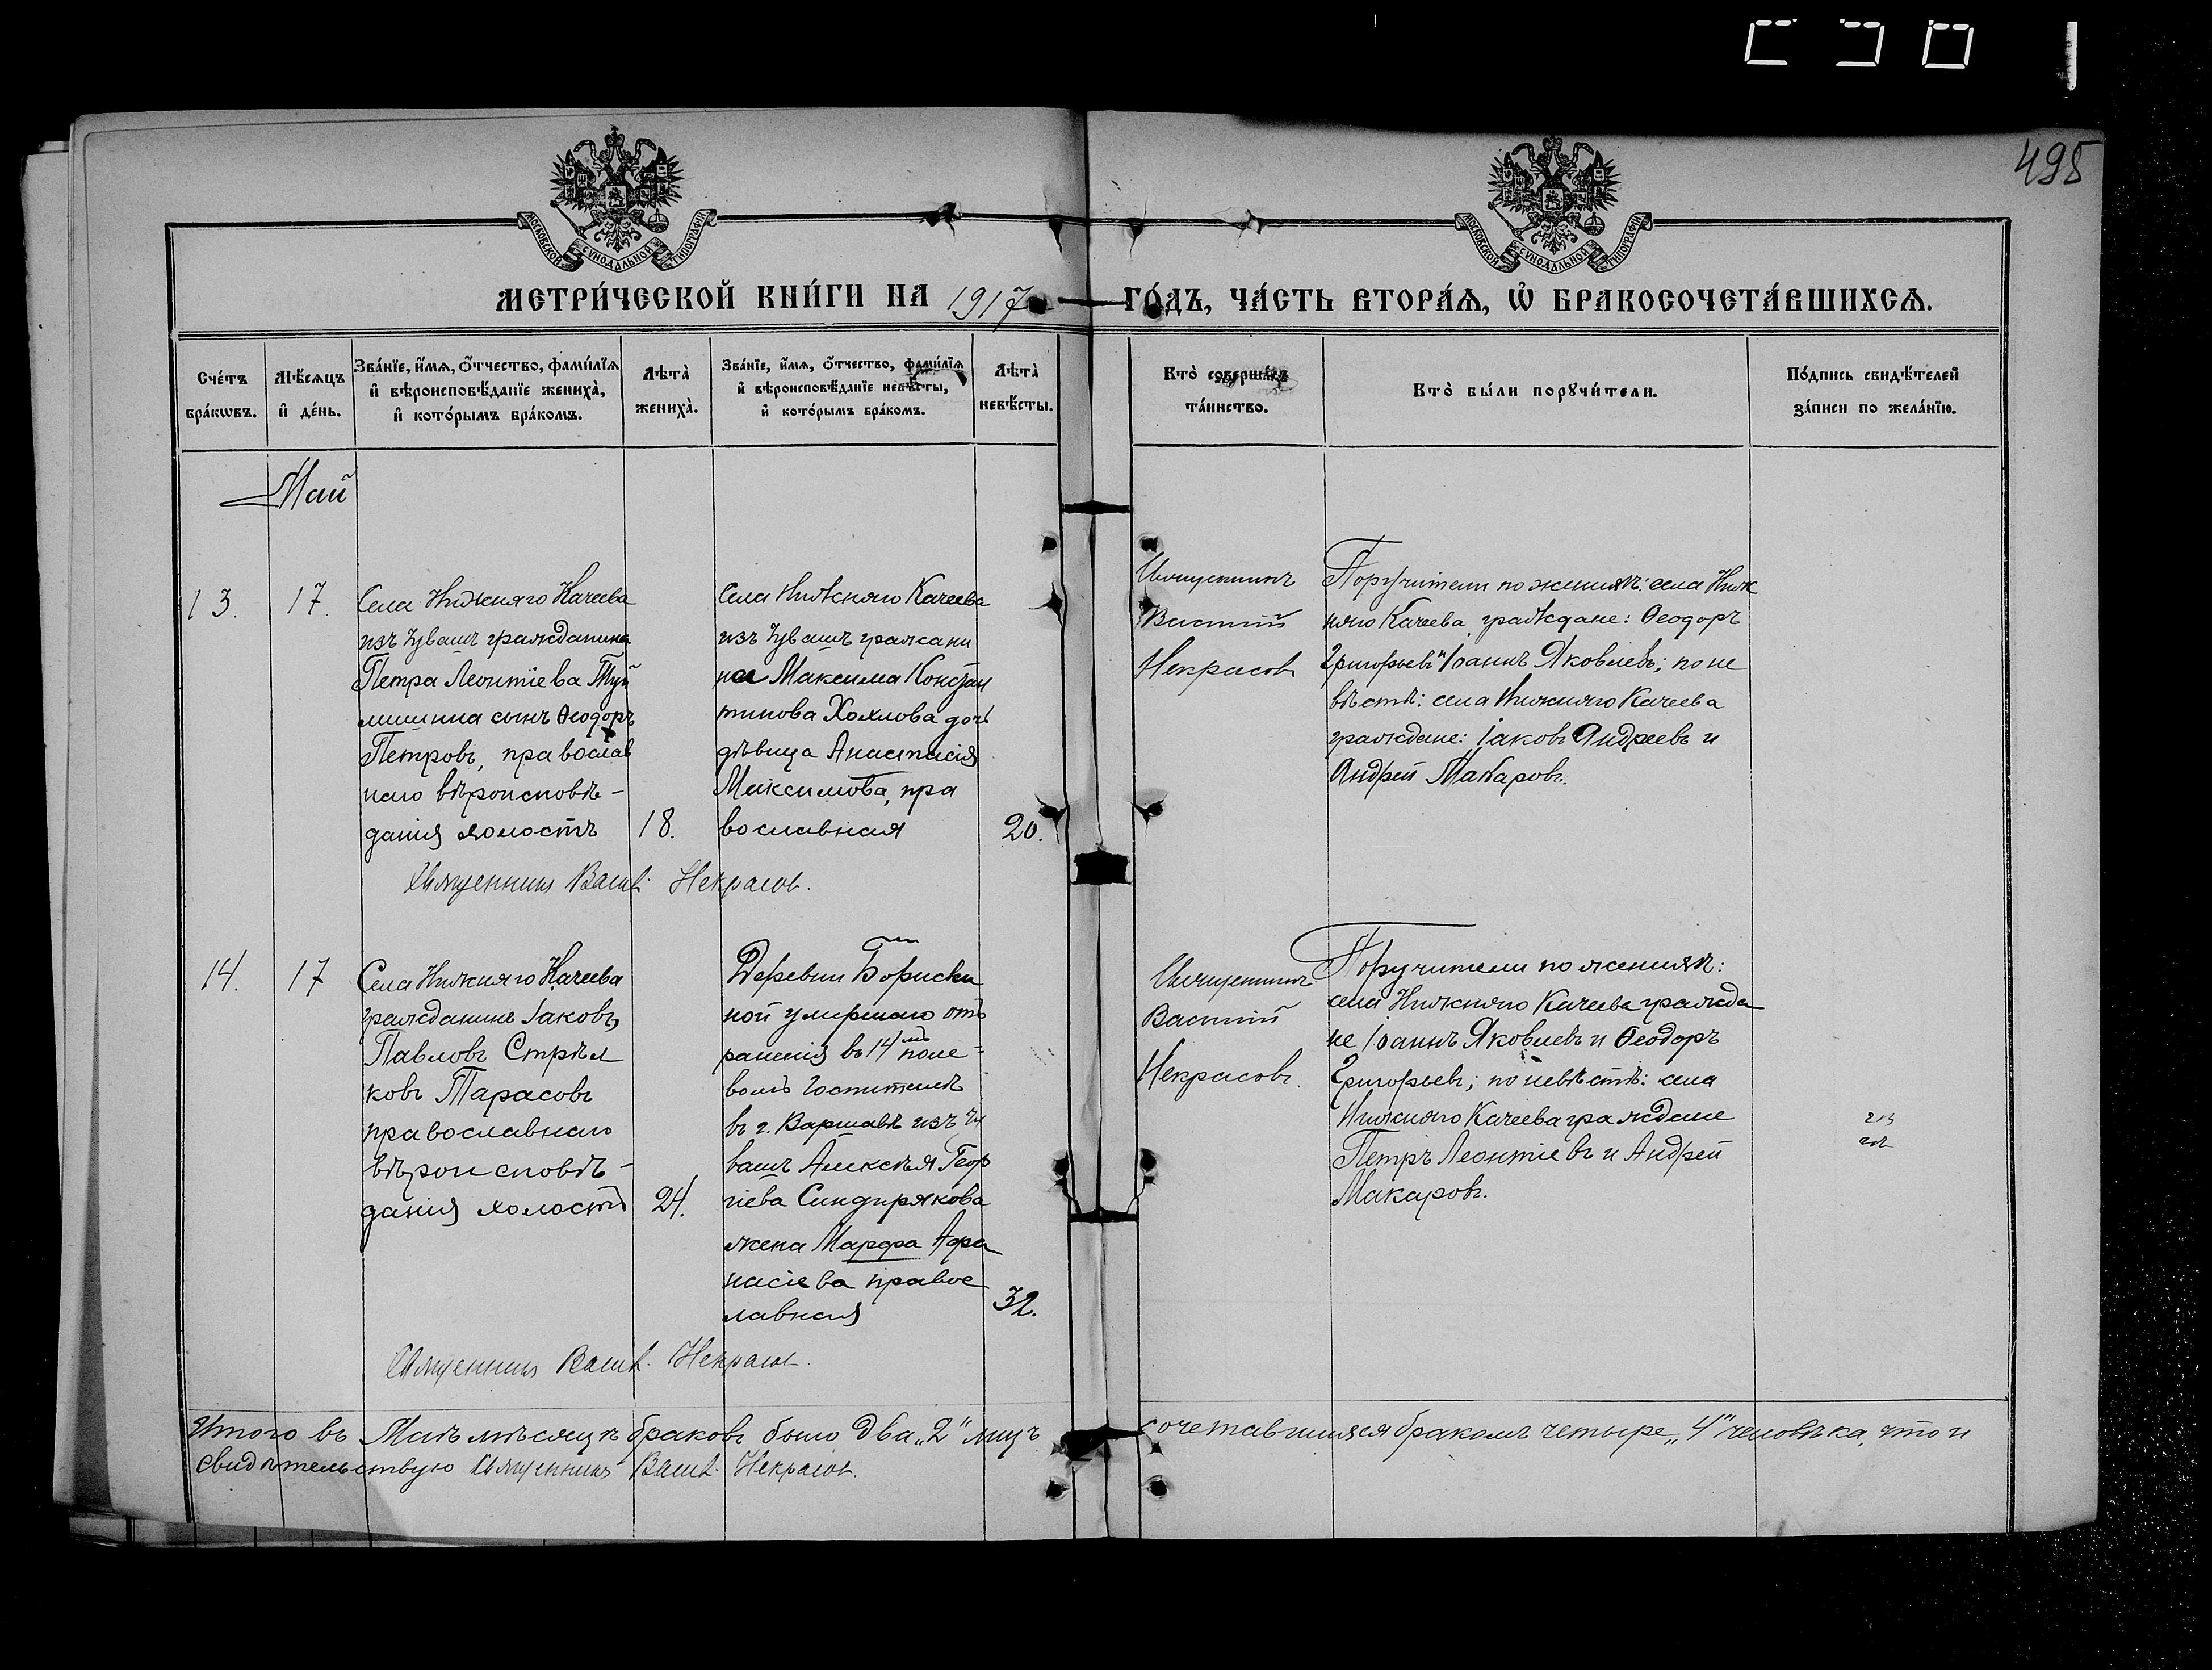 495
МОСКОВСКОЙ СѴНОДАЛЬНОЙ ТИПОГРАФІИ
МОСКОВСКОЙ СѴНОДАЛЬНОЙ ТИПОГРАФІИ
МЕТРИ́ЧЕСКОЙ КНИ́ГИ НА 1917 ГО́ДЪ, ЧА́СТЬ ВТОРА́Ѧ, Ѡ҆ БРАКОСОЧЕТА́ВШИХСѦ.
Сче́тъ
бра́кѡвъ.
Мѣ́сѧцъ
и҆ де́нь.
Зва́нїе, и҆́мѧ, о҆́тчество, фами́лїѧ
и҆ вѣроисповѣ́данїе жениха̀,
и҆ кото́рымъ бра́комъ.
Лѣта̀
жениха̀.
Зва́нїе, и҆́мѧ, о҆́тчество, фами́лїѧ
и҆ вѣроисповѣ́данїе невѣ́сты,
и҆ кото́рымъ бра́комъ.
Лѣта̀
невѣ́сты.
Кто̀ соверша́лъ
та́инство.
Кто̀ бы́ли порꙋчи́тели.
По́дпись свидѣ́телей
за́писи по жела́нїю.
Май
13.
17.
Села Нижняго Качеева
изъ Чувашъ гражданина
Петра Леонтіева Туй
мишина сынъ Ѳеодоръ
Петровъ, православ
наго вѣроисповѣ-
данія холостъ
18.
Села Нижняго Качеева
изъ Чувашъ граждани
на Максима Констан
тинова Хохлова дочь
дѣвица Анастасія
Максимова, пра
вославная
20.
Священникъ
Василій
Некрасовъ
Поручители по женихѣ: села Ниж
няго Качеева граждане: Ѳеодоръ
Григорьевъ и Іоаннъ Яковлевъ; по не
вѣстѣ: села Нижняго Качеева
граждане: Іаковъ Андреевъ и
Андрей Макаровъ.
Священникъ Васил. Некрасов.
14.
17
Села Нижняго Качеева
гражданинъ Іаковъ
Павловъ Стрѣл
ковъ Тарасовъ
православнаго
вѣроисповѣ-
данія холостъ
24.
Деревни Бориски
ной умершаго отъ
раненія въ 14мъ поле-
вомъ госпиталѣ
въ г. Варшавѣ изъ Чу
вашъ Алексѣя Геор
гіева Синдирякова
жена Марфа Афа
насіева правос
лавная
32.
Священникъ
Василій
Некрасовъ.
Поручители по женихѣ:
села Нижняго Качеева гражда
не Іоаннъ Яковлевъ и Ѳеодоръ
Григорьевъ; по невѣстѣ: села
Нижняго Качеева граждане
Петръ Леонтіевъ и Андрей
Макаровъ.
Священникъ Васил. Некрасов.
Итого въ Маѣ мѣсяцѣ браковъ было два „2" лицъ сочетавшихся бракомъ четыре „4" человѣка, что и
свидѣтельствую Священникъ Васил. Некрасов.